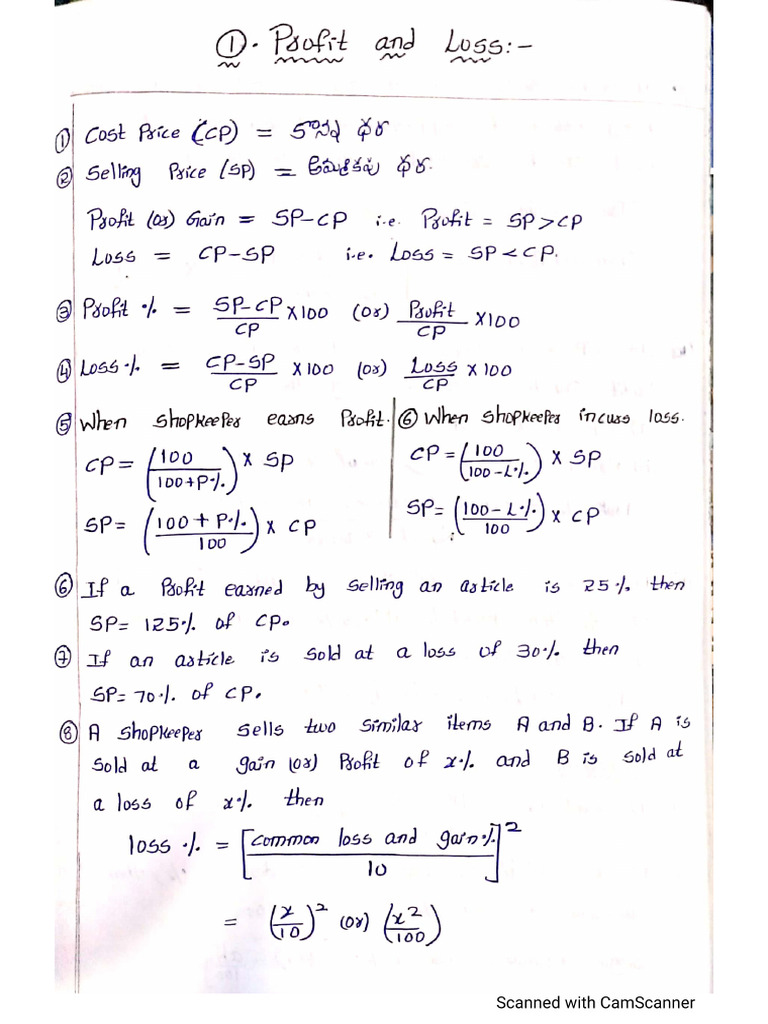 ①. Profit and Loss:-
① Cost Price (CP) = కొన్న ధర
② Selling Price (SP) = అమ్మకపు ధర.
Profit (or) Gain = SP-CP i.e. Profit = SP>CP
Loss = CP-SP i.e. Loss = SP<CP.
③ Profit % = SP-CP/CP ×100 (or) Profit/CP ×100
④ Loss % = CP-SP/CP ×100 (or) Loss/CP ×100
⑤ When shopkeeper earns Profit.
CP = (100/100+P%) × SP
SP = (100+P%/100) × CP
⑥ When shopkeeper incurs loss.
CP = (100/100-L%) × SP
SP = (100-L%/100) × CP
⑥ If a Profit earned by selling an article is 25% then
SP= 125% of CP.
⑦ If an article is sold at a loss of 30% then
SP= 70% of CP.
⑧ A shopkeeper sells two similar items A and B. If A is
sold at a gain (or) Profit of x% and B is sold at
a loss of x% then
loss % = [common loss and gain%/10]²
= (x/10)² (or) (x²/100)
Scanned with CamScanner